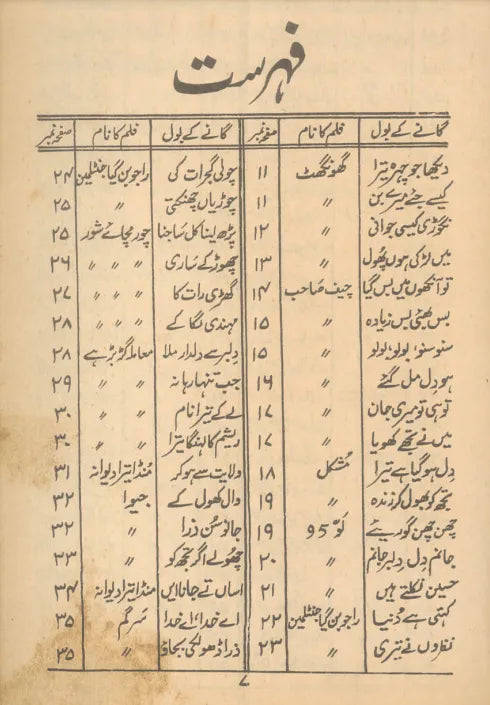 فہرست
گانے کے بول فلم کا نام صفحہ نمبر گانے کے بول فلم کا نام صفحہ نمبر
دیکھا جو چہرہ تیرا گھونگھٹ ۱۱ چولی گجرات کی راجو بن گیا جنٹلمین ۲۴
کیسے جئے میرے بن ″ ۱۱ چوڑیاں چھنکتی ″ ۲۵
نگوڑی کیسی جوانی ″ ۱۲ پڑھ لینا کل ساجنا چور مچائے شور ۲۵
میں لڑکی ہوں پھول ″ ۱۳ چھوڑ کے ساری ″ ″ ″ ۲۶
تو آنکھوں میں بس گیا چیف صاحب ۱۴ گھڑی رات کا ″ ″ ″ ۲۷
بس بھئی بس زیادہ ″ ۱۵ مہندی لگا کے ″ ″ ″ ۲۸
سنو سنو، بولو، بولو ″ ۱۵ دلبر سے دلدار ملا معاملہ گڑبڑ ہے ۲۸
ہو دل مل گئے ″ ۱۶ جب تنہا رہا نہ ″ ″ ۲۹
تو ہی تو میری جان ″ ۱۷ لے کے تیرا نام ″ ″ ۳۰
میں نے تجھے کھویا ″ ۱۷ ریشم کا لہنگا تیرا ″ ″ ۳۰
دل ہو گیا ہے تیرا مشکل ۱۸ ولایت سے ہو کر منڈا تیرا دیوانہ ۳۱
تجھ کو بھول کر زندہ ″ ۱۹ وال کھول کے جیوا ۳۲
چھن چھن گوریئے لوّ 95 ۱۹ جانو سن ذرا ″ ۳۲
جانم دل، دلبر جانم ″ ۲۰ چھولے اگر تجھ کو ″ ۳۳
حسین نکلتے ہیں ″ ۲۱ اساں تے جاناں ایں منڈا تیرا دیوانہ ۳۴
کہتی ہے دنیا راجو بن گیا جنٹلمین ۲۲ اے خدا، اے خدا سرگم ۳۵
نظروں نے تیری ″ ۲۳ ذرا ڈھولکی بجاؤ ″ ۳۵
۷